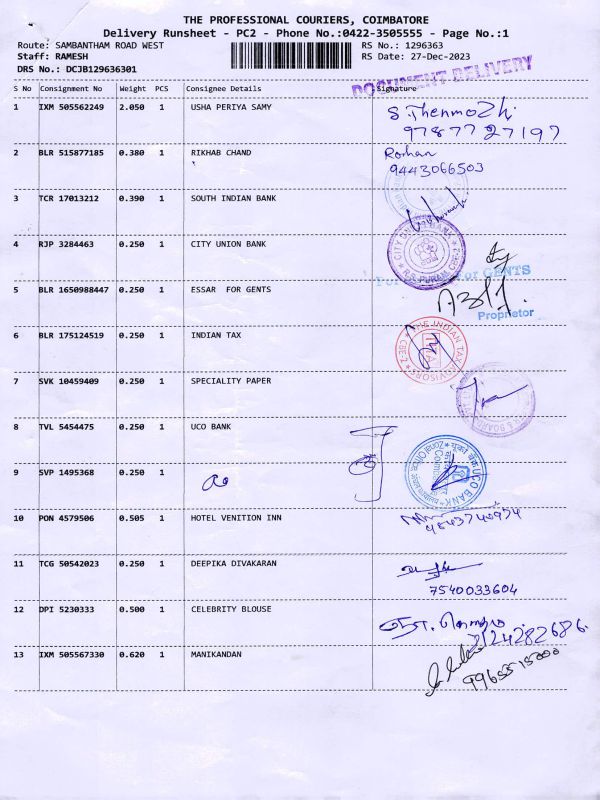 THE PROFESSIONAL COURIERS, COIMBATORE
Delivery Runsheet - PC2 - Phone No.:0422-3505555 - Page No.:1
Route: SAMBANTHAM ROAD WEST RS No.: 1296363
Staff: RAMESH RS Date: 27-Dec-2023
DRS No.: DCJB129636301
DOCUMENT DELIVERY
S No Consignment No Weight PCS Consignee Details Signature
1 IXM 505562249 2.050 1 USHA PERIYA SAMY S. Thenmozhi
9787727197
2 BLR 515877185 0.380 1 RIKHAB CHAND Roshan
9443066503
3 TCR 17013212 0.390 1 SOUTH INDIAN BANK
4 RJP 3284463 0.250 1 CITY UNION BANK
CITY UNION BANK
R.S. PURAM
For GENTS
5 BLR 1650988447 0.250 1 ESSAR FOR GENTS
Proprietor
6 BLR 175124519 0.250 1 INDIAN TAX
THE INDIAN TAX ADVISORS
CBE-2
7 SVK 10459409 0.250 1 SPECIALITY PAPER
8 TVL 5454475 0.250 1 UCO BANK
UCO BANK
Zonal Office
9 SVP 1495368 0.250 1
10 PON 4579506 0.505 1 HOTEL VENITION INN
9843740974
11 TCG 50542023 0.250 1 DEEPIKA DIVAKARAN
7540033604
12 DPI 5230333 0.500 1 CELEBRITY BLOUSE
13 IXM 505567330 0.620 1 MANIKANDAN